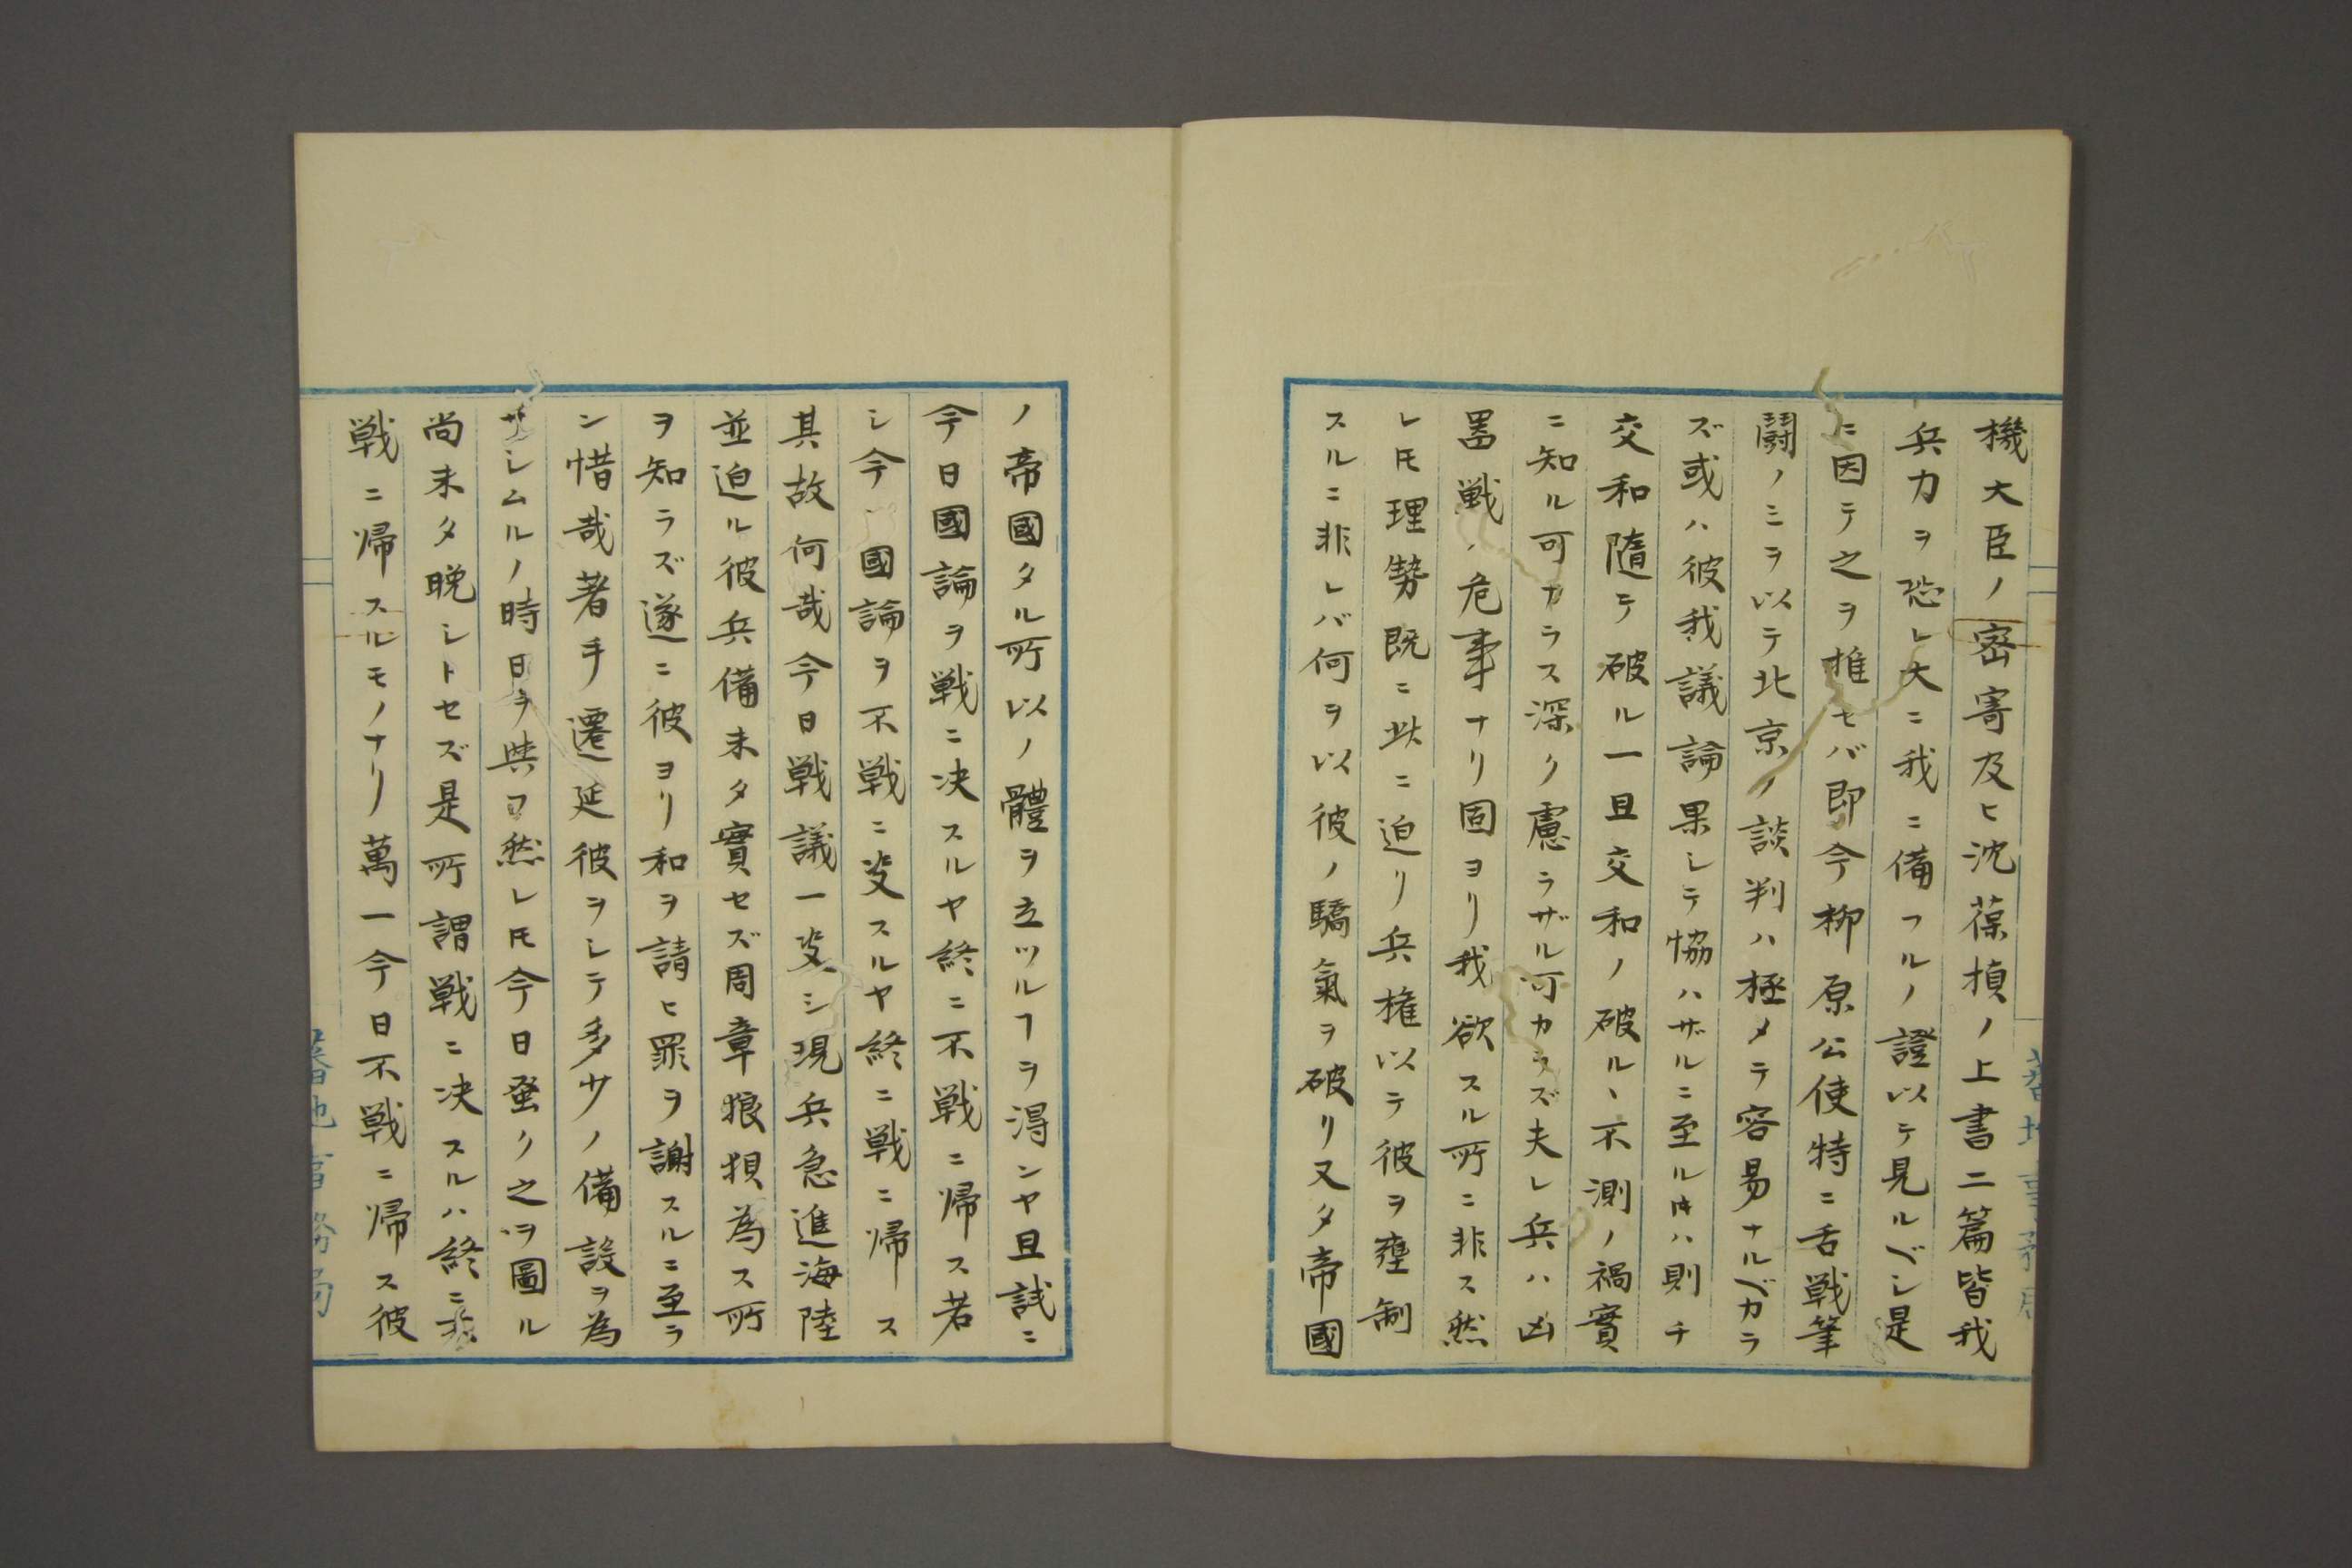 機大臣ノ密寄及ヒ沈葆楨ノ上書二篇皆我
兵力ヲ恐レ大ニ我ニ備フルノ證以テ見ルベシ是
ニ因テ之ヲ推セバ即今柳原公使特ニ舌戦筆
闘ノミヲ以テ北京ノ談判ハ極メテ容易ナルベカラ
ズ或ハ彼我議論果シテ協ハザルニ至ル時ハ則チ
交和隨テ破ル一旦交和ノ破ルヽ不測ノ禍實
ニ知ル可カラス深ク慮ラザル可カラズ夫レ兵ハ凶
噐戦ハ危事ナリ固ヨリ我欲スル所ニ非ス然
レ𪜈理勢既ニ此ニ迫リ兵權以テ彼ヲ壅制
スルニ非レバ何ヲ以彼ノ驕氣ヲ破リ又タ帝國
ノ帝國タル所以ノ體ヲ立ツルヿヲ淂ンヤ且試ニ
今日國論ヲ戦ニ决スルヤ終ニ不戦ニ帰ス若
シ今國論ヲ不戦ニ决スルヤ終ニ戦ニ帰ス
其故何哉今日戦議一决シ現兵急進海陸
並迫ル彼兵備未タ實セズ周章狼狽為ス所
ヲ知ラズ遂ニ彼ヨリ和ヲ請ヒ罪ヲ謝スルニ至ラ
ン惜哉著手遷延彼ヲシテ多少ノ備設ヲ為
サシムルノ時日ヲ與フ然レ𪜈今日蚤ク之ヲ圖ル
尚未タ晩シトセズ是所謂戦ニ决スルハ終ニ非
戦ニ帰スルモノナリ萬一今日不戦ニ帰ス彼
蕃地事務局
蕃地事務局